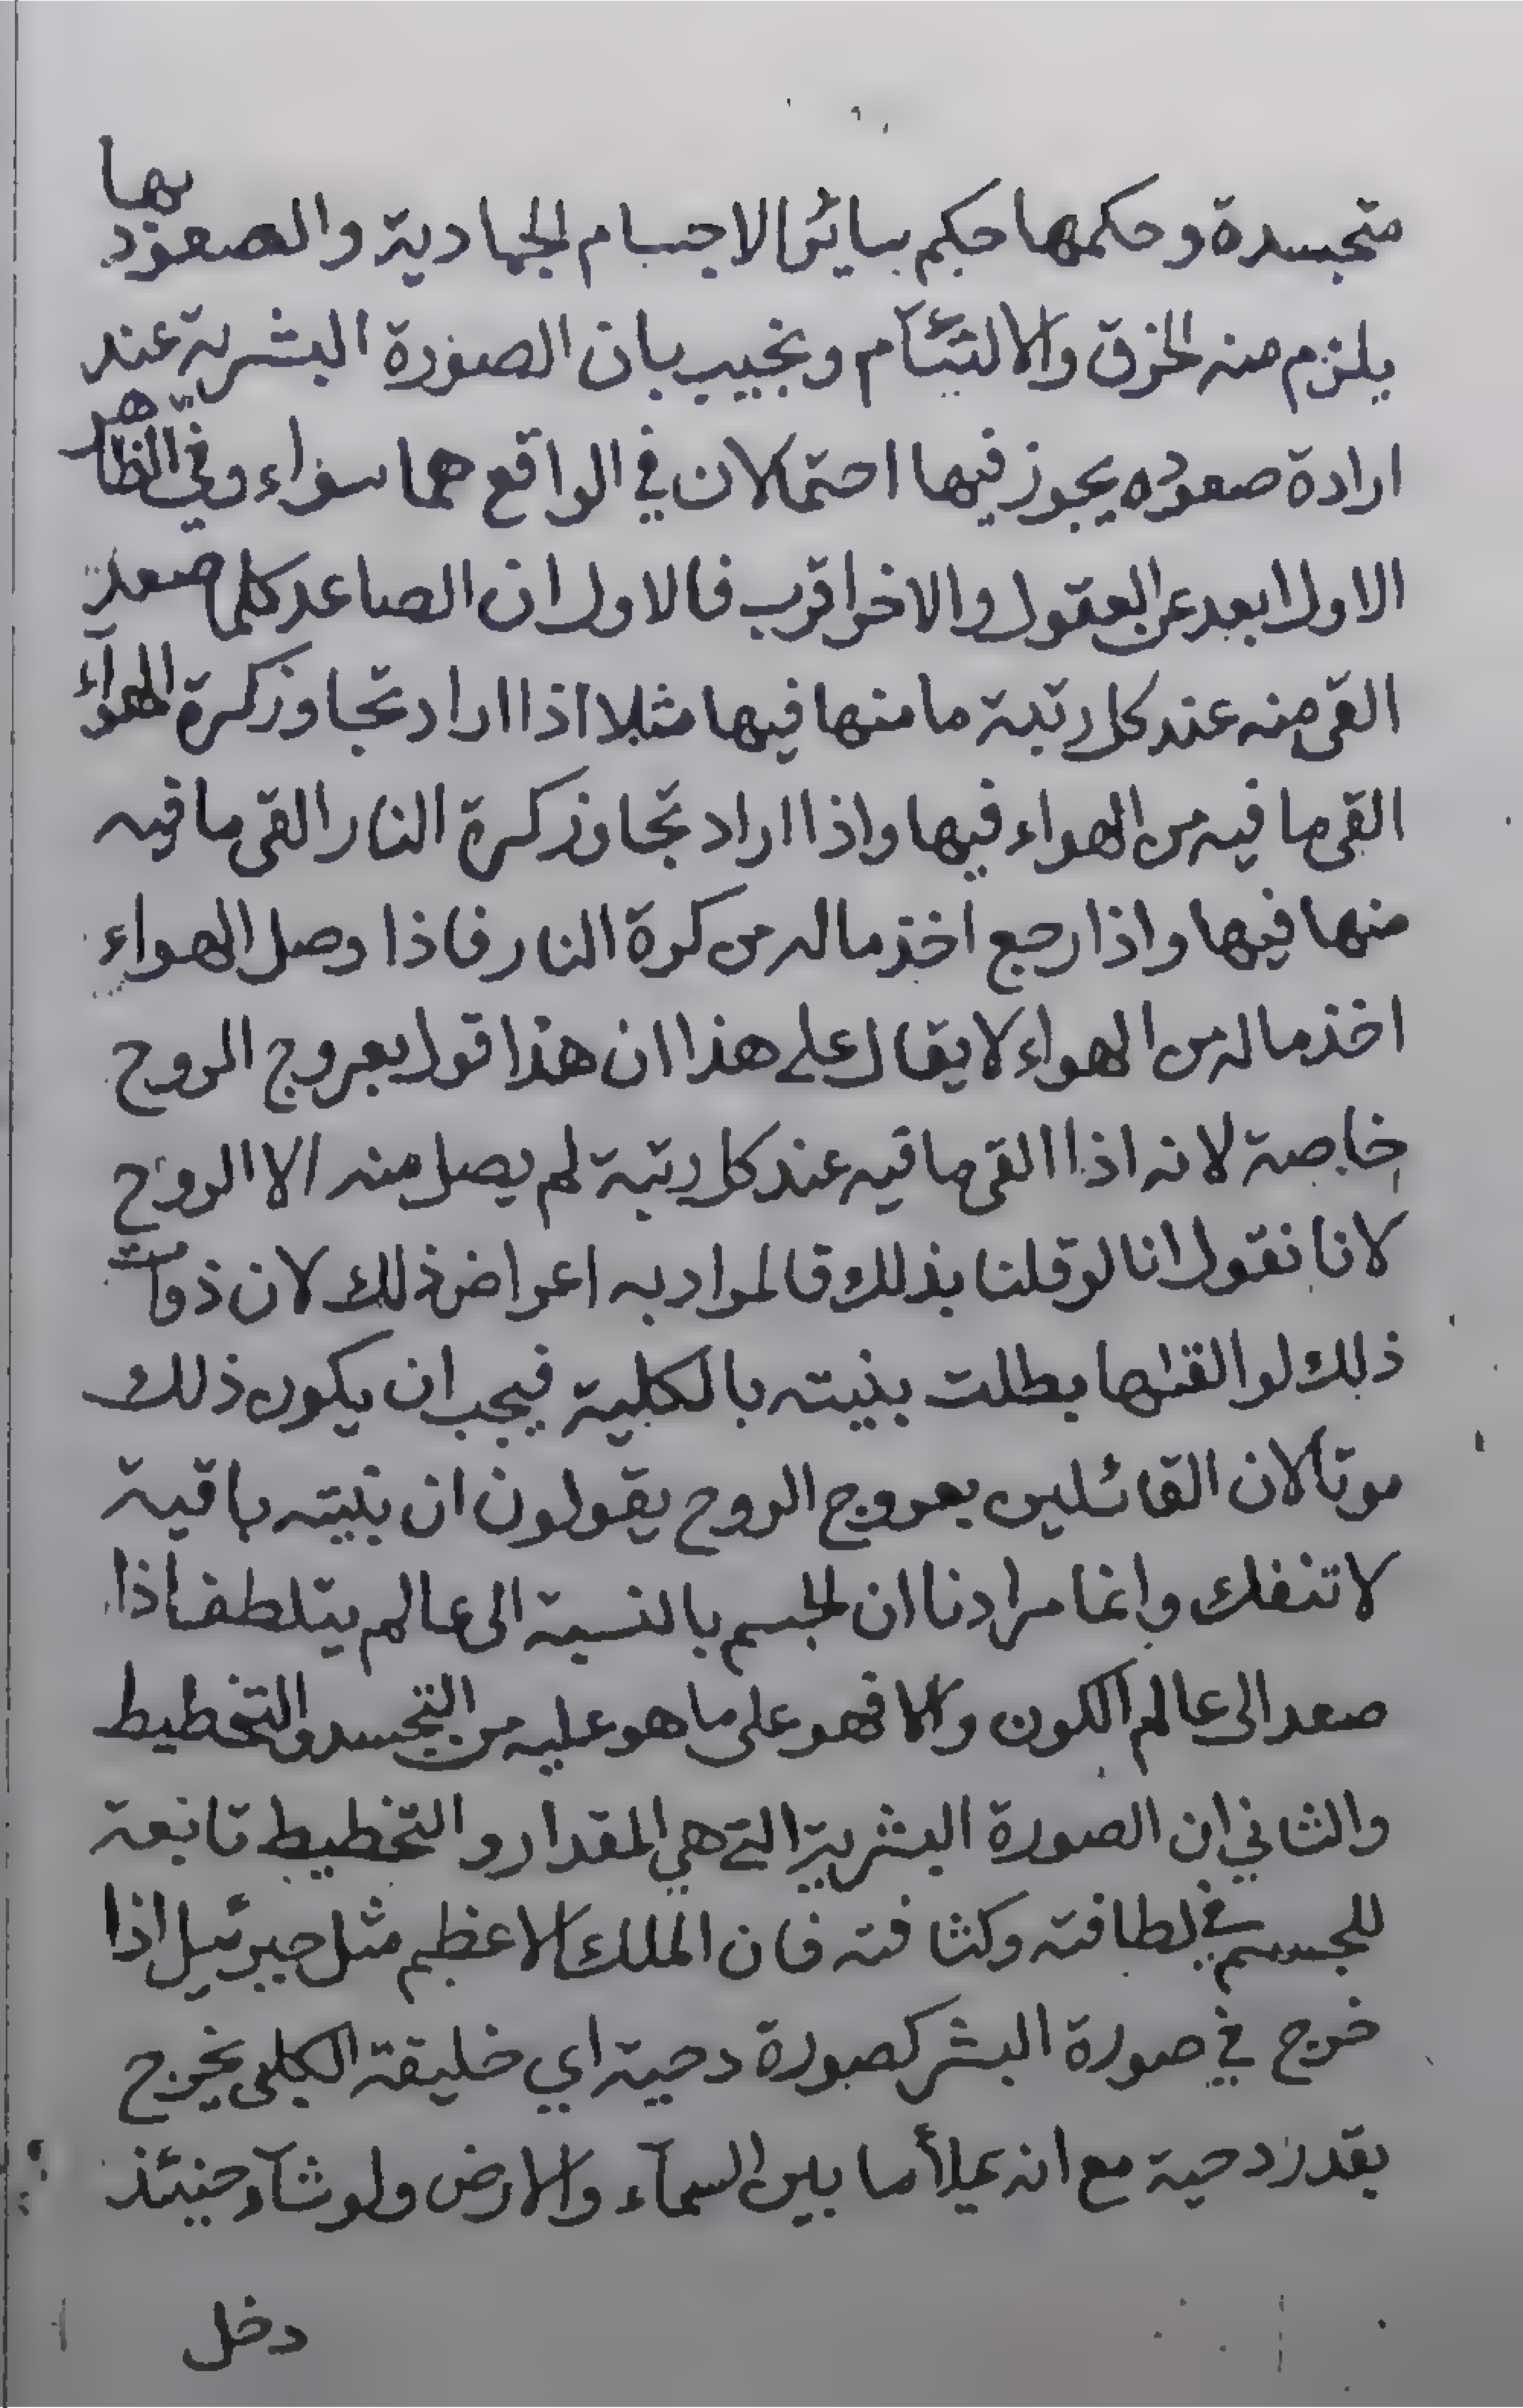 متجسدة وحكمها حكم سائر الاجسام الجمادية والصعود بها
يلزم منه الخرق والالتئام ونجيب بان الصورة البشرية عند
ارادة صعوده يجوز فيها احتمالان في الواقع هما سواء وفي الظاهر
الاول ابعد عن العقول والاخر اقرب فالاول ان الصاعد كلما صعد
القى منه عند كل رتبة ما منها فيها مثلا اذا اراد تجاوز كرة الهوآء
القى ما فيه من الهواء فيها واذا اراد تجاوز كرة النار القى ما فيه
منها فيها واذا رجع اخذ ماله من كرة النار فاذا وصل الهواء
اخذ ماله من الهواء لا يقال على هذا ان هذا قول بعروج الروح
خاصة لانه اذا القى ما فيه عند كل رتبة لم يصل منه الا الروح
لانا نقول انا لو قلنا بذلك فالمراد به اعراض ذلك لان ذوات
ذلك لو القاها بطلت بنيته بالكلية فيجب ان يكون ذلك
موتا لان القائلين بعروج الروح يقولون ان بنيته باقية
لا تنفك وانما مرادنا ان الجسم بالنسبة الى عالم يتلطف اذا
صعد الى عالم الكون والا فهو على ما هو عليه من التجسد والتخطيط
والثاني ان الصورة البشرية التي هي المقدار و التخطيط تابعة
للجسم في لطافته وكثافته فان الملك الاعظم مثل جبرئيل اذا
خرج في صورة البشر كصورة دحية اي خليقة الكلبى يخرج
بقدر دحية مع انه يملأ ما بين السمآء والارض ولو شآء حينئذ
دخل